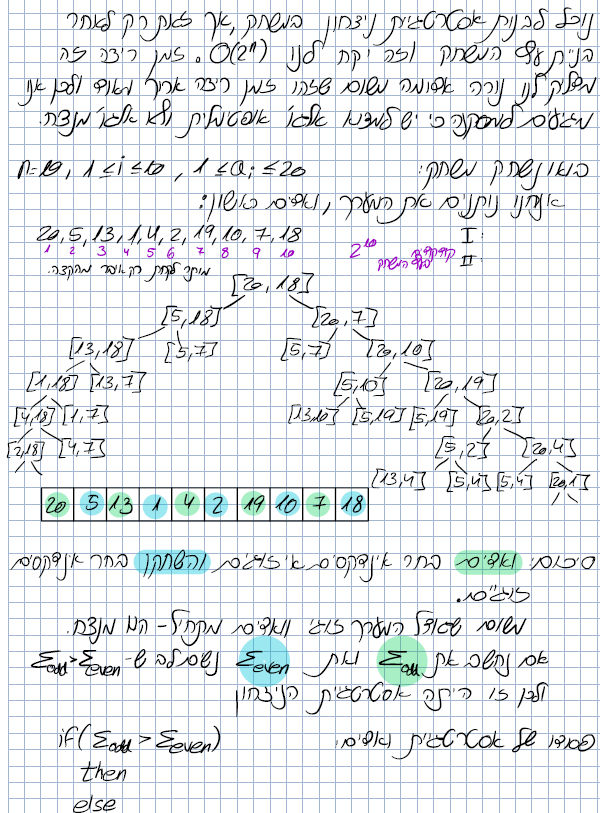 נוכל לבנות אסטרטגיית ניצחון במשחק, אך זאת רק לאחר
בניית עץ המשחק וזה יקח לנו O(2ⁿ). זמן ריצה זה
מדליק לנו נורה אדומה משום שזהו זמן ריצה ארוך מאוד ולכן אנו
מגיעים למסקנה כי יש למצוא אלגו׳ אופטמלית ולא אלגו׳ מנצח.
בואו נשחק משחק: n=10, 1≤i≤10, 1≤aᵢ≤20
אנחנו נותנים את המערך, ואדים ראשון:
I: 20, 5, 13, 1, 4, 2, 19, 10, 7, 18
II: 1 2 3 4 5 6 7 8 9 10
2¹⁰ קודקודים בעץ המשחק
מותר לקחת רק איבר מהקצה.
[20,18]
[5,18] [20,7]
[13,18] [5,7] [5,7] [20,10]
[1,18] [13,7] [5,10] [20,19]
[4,18] [1,7] [13,10] [5,19] [5,19] [20,2]
[2,18] [4,7] [5,2] [20,4]
[13,4] [5,4] [5,4] [20,1]
20 5 13 1 4 2 19 10 7 18
סיכום: ואדים בחר אינדקסים אי זוגיים והשחקן בחר אינדקסים
זוגיים.
משום שגודל המערך זוגי ואדים מתחיל - הוא מנצח.
אם נחשב את Σodd ואת Σeven נשים לב ש- Σodd>Σeven
ולכן זו היתה אסטרטגיית הניצחון
פסודו של אסטרטגיית ואדים:
if(Σodd > Σeven)
then
else